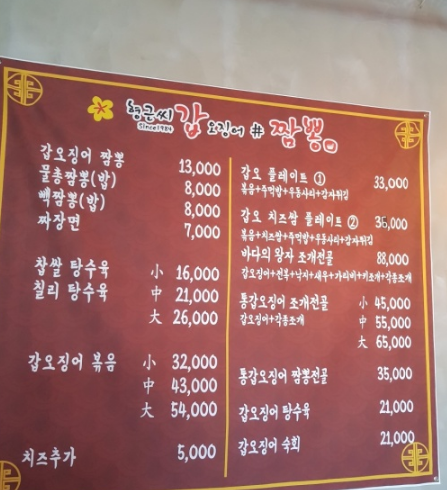 형근씨 갑오징어 # 짬뽕
Since1984
갑오징어 짬뽕 13,000
물총짬뽕(밥) 8,000
빽짬뽕(밥) 8,000
짜장면 7,000
찹쌀 탕수육 小 16,000
칠리 탕수육 中 21,000
大 26,000
갑오징어 볶음 小 32,000
中 43,000
大 54,000
치즈추가 5,000
갑오 플레이트 ① 33,000
볶음+주먹밥+우동사리+감자튀김
갑오 치즈쌈 플레이트 ② 36,000
볶음+치즈쌈+주먹밥+우동사리+감자튀김
바다의 왕자 조개전골 88,000
갑오징어+전복+낙지+새우+가리비+키조개+각종조개
통갑오징어 조개전골 小 45,000
갑오징어+각종조개 中 55,000
大 65,000
통갑오징어 짬뽕전골 35,000
갑오징어 탕수육 21,000
갑오징어 숙회 21,000